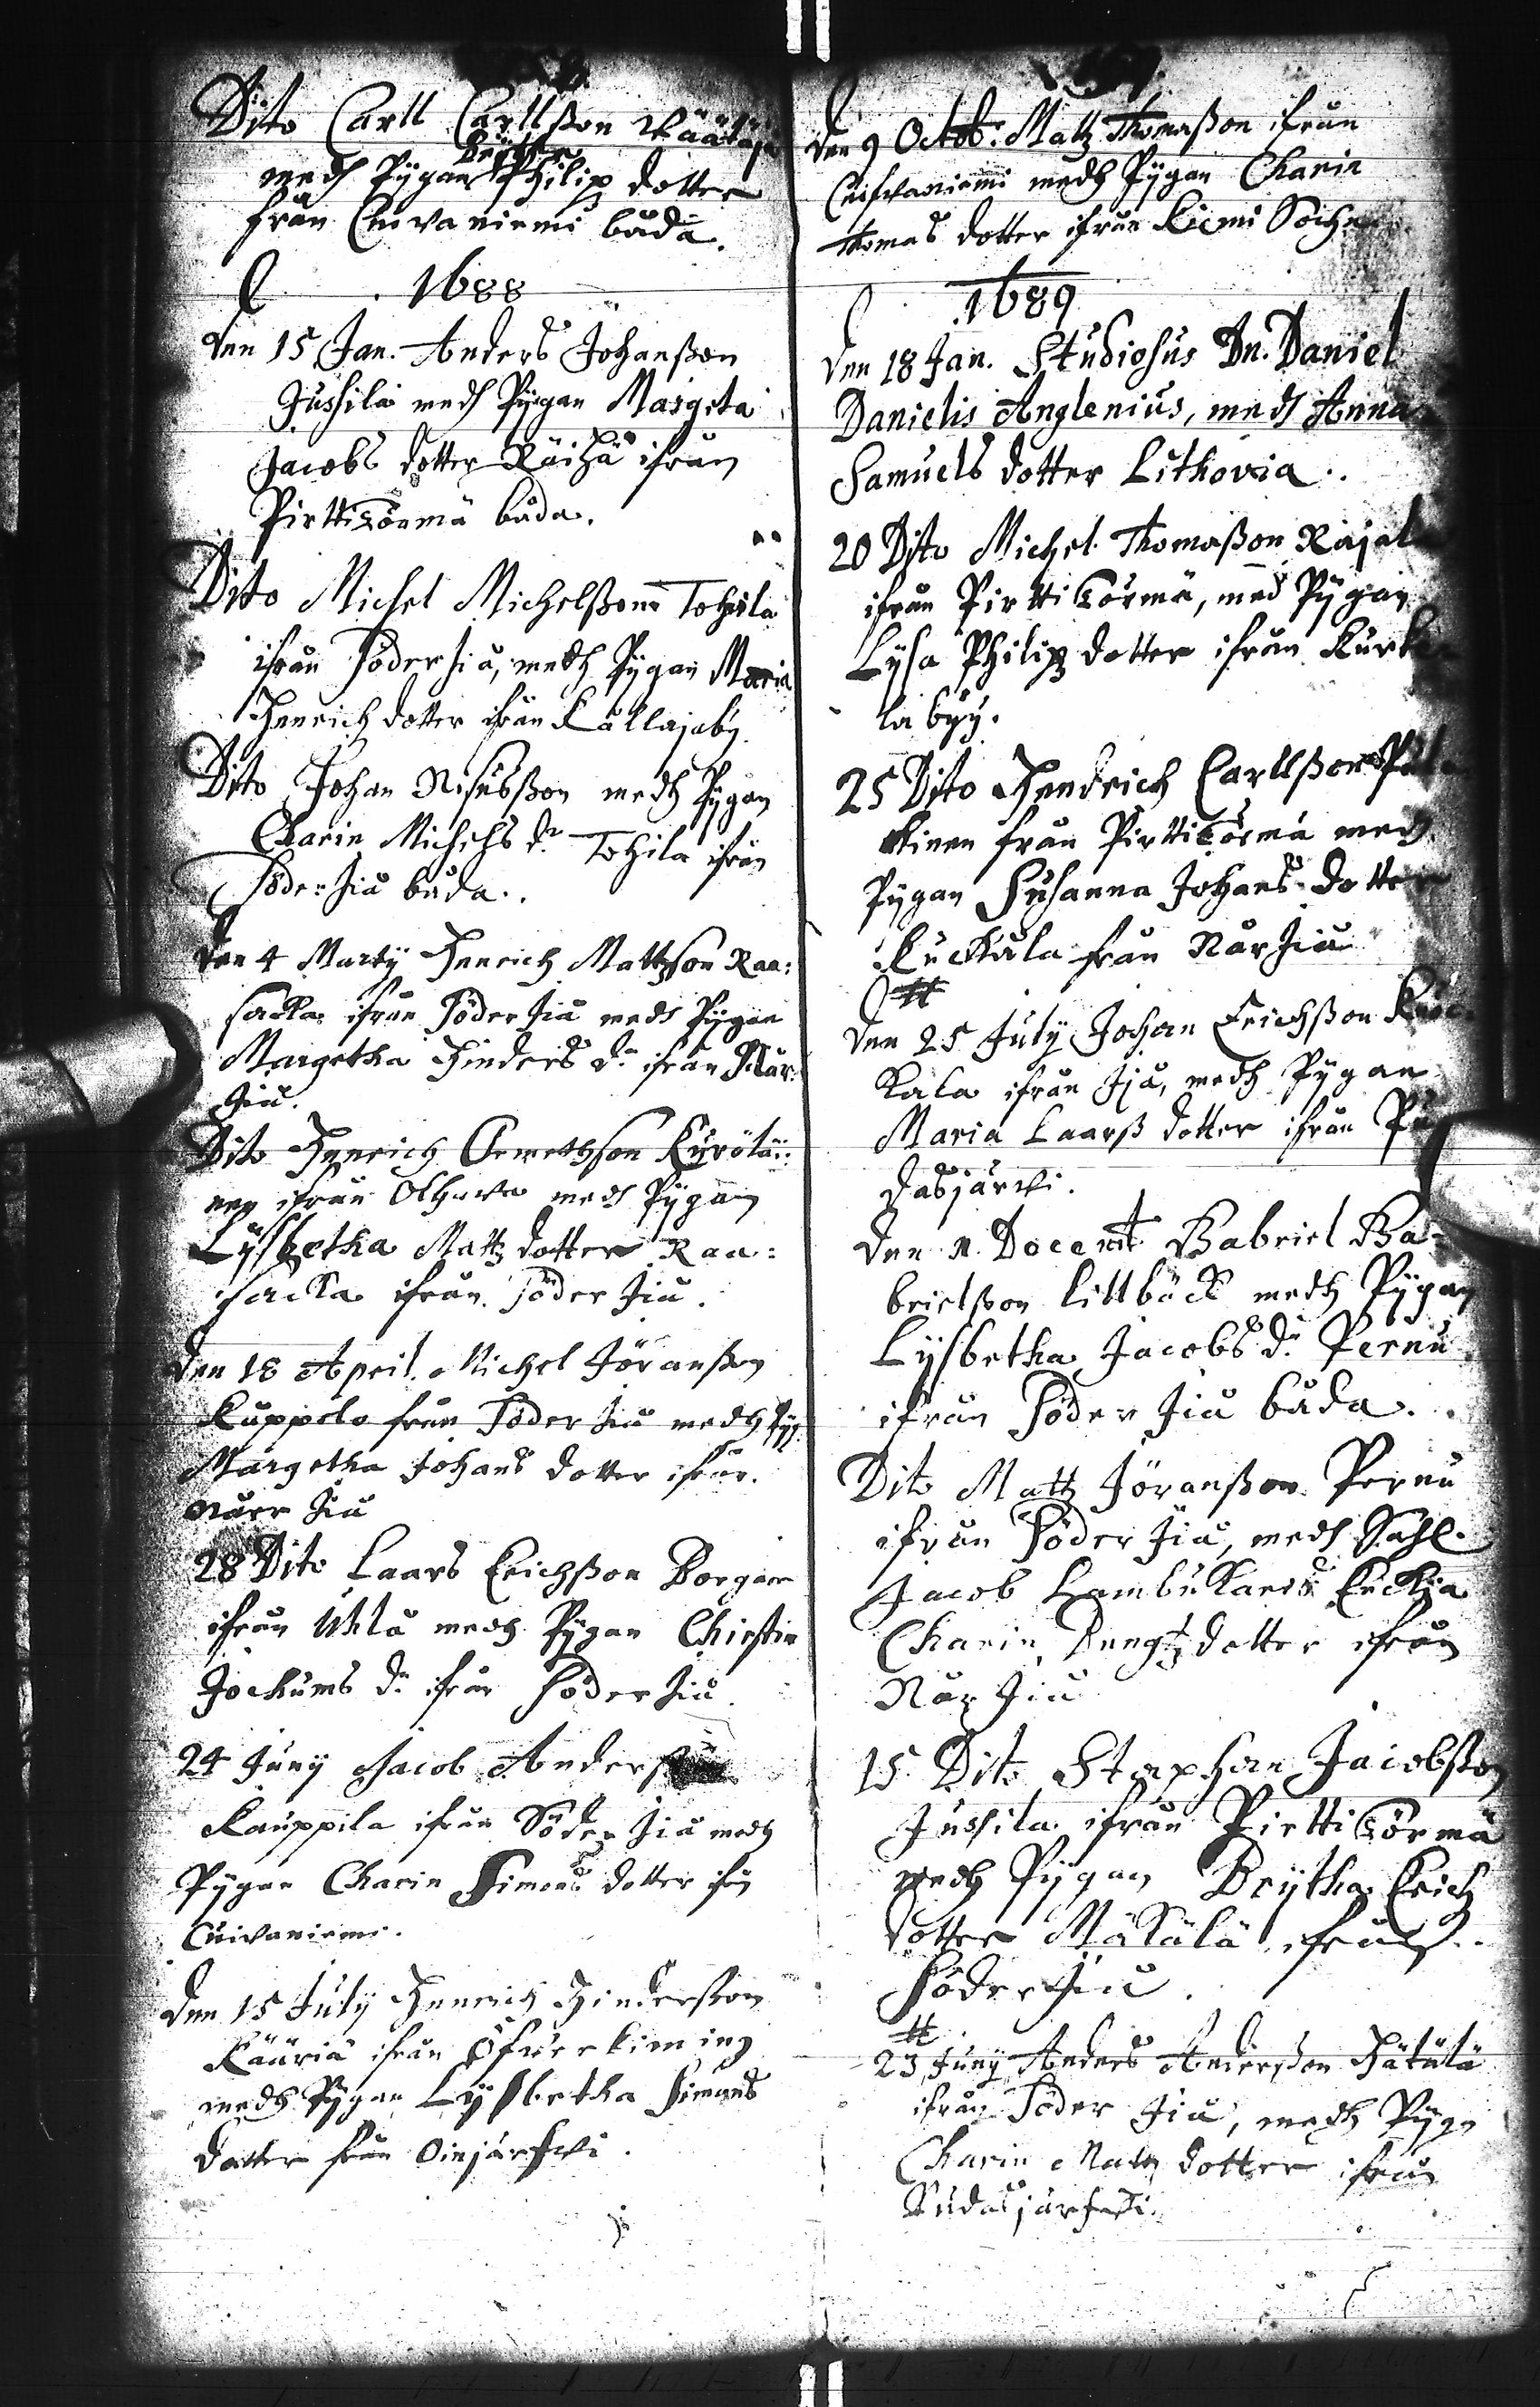 Dito Carll Carllßon Räätäjä
Brijtha
medh Pijgan Philip dotter
från Cuivaniemi båda.
1688
den 15 Jan. Anders Johanßon
Jussila medh Pijgan Margeta
Jacobs dotter Räihä ifrån
Pirttitörmä båda.
Dito Michel Michelßonn Tohila
ifrån Söder Jiå, medh Pijgan Maria
Henrich dotter ifrån Kallajaby
Dito Johan Nilsßon medh Pijgan
Charin Michels dr Tohila ifrån
Söder Jiå båda.
den 4 Martij Henrich Mattzson Raa:
sacka ifrån Söder Jiå medh Pijgan
Margetha Hinders dr ifrån När
Jiå.
Dito Henrich Clemethson Kurõtä:
nen ifrån Olhava medh Pijgan
Lijsbetha Mattz dotter Raa:
sacka ifrån Söder Jiå.
den 18 April. Michel Jöranßon
Kuppelo från Söder Jiå medh Pijg:
Margetha Johans dotter ifrån
Nörr Jiå
28 Dito Laars Erichßon Borgare
ifrån Uhlå medh Pijgan Chirstin
Jochums dr ifrån Söder Jiå.
24 Junij Jacob Andersson
Kauppila ifrån Söder Jiå medh
Pijgan Charin Simons dotter ifrån
Cuivaniemi.
den 15 Julij Henrich Hinderßon
Kääriä ifrån Öfver Kiming
medh Pijgan Lijsbetha Simons
dotter från Oinjärfwi.
den 9 Octob: Mattz Thomaßon ifrån
Cuifvaniemi medh Pijgan Charin
Thomas dotter ifrån Kiemi Sochn
1689
den 18 Jan. Studiosus Dn. Daniel
Danielis Anglenius, medh Anna
Samuels dotter Lithovia.
20 Dito Michel Thomaßon Rajala
ifrån Pirttitörmä, med Pijgan
Lijsa Philip dotter ifrån Kurke
la byy.
25 Dito Hendrich Carllßon
kinen från Pirttitörmä medh
Pijgan Susanna Johans dotter
Kuckula från När Jiå
den 25 Julij Johan Erichßon Kuc
kala ifrån Jjå, medh Pijgan
Maria Laarß dotter ifrån Pu
dasjärvi.
den Decemt Gabriel Ga-
brielßon Littbäck medh Pijgan
Lijsbetha Jacobs dr Pernu
ifrån Söder Jiå båda.
Dito Mattz Jöranßon Pernu
ifrån Söder Jiå, medh Sahl.
Jacob Lambukaris Enckia
Charin Bengtz dotter ifrån
När Jiå
15 Dito Staphan Jacobßon
Jussila ifrån Pirttitörmä
medh Pijgan Brijtha Erich
dotter Mäkälä ifrån
Söder Jiå.
23 Junij Anders Anderßon Hätälä
ifrån Söder Jiå, medh Pijgn
Charin Mattz dotter ifrån
Pudasjärfwi.